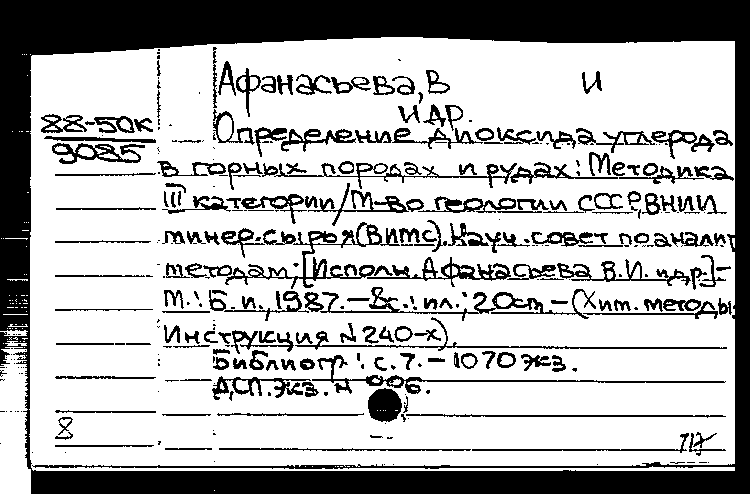 Афанасьева, В И
И ДР.
88-50К
9085
Определение диоксида углерода
в горных породах и рудах: Методика
III категории/М-во геологии СССР, ВНИИ
минер. сырья (ВИМС). Науч. совет по аналит
методам; [Исполн. Афанасьева В.И. и др.]-
М.: Б. и., 1987.-8с.: ил.; 20см.-(Хим. методы;
Инструкция N 240-х).
Библиогр: с. 7.-1070 экз.
ДСП. Экз. N 006.
8